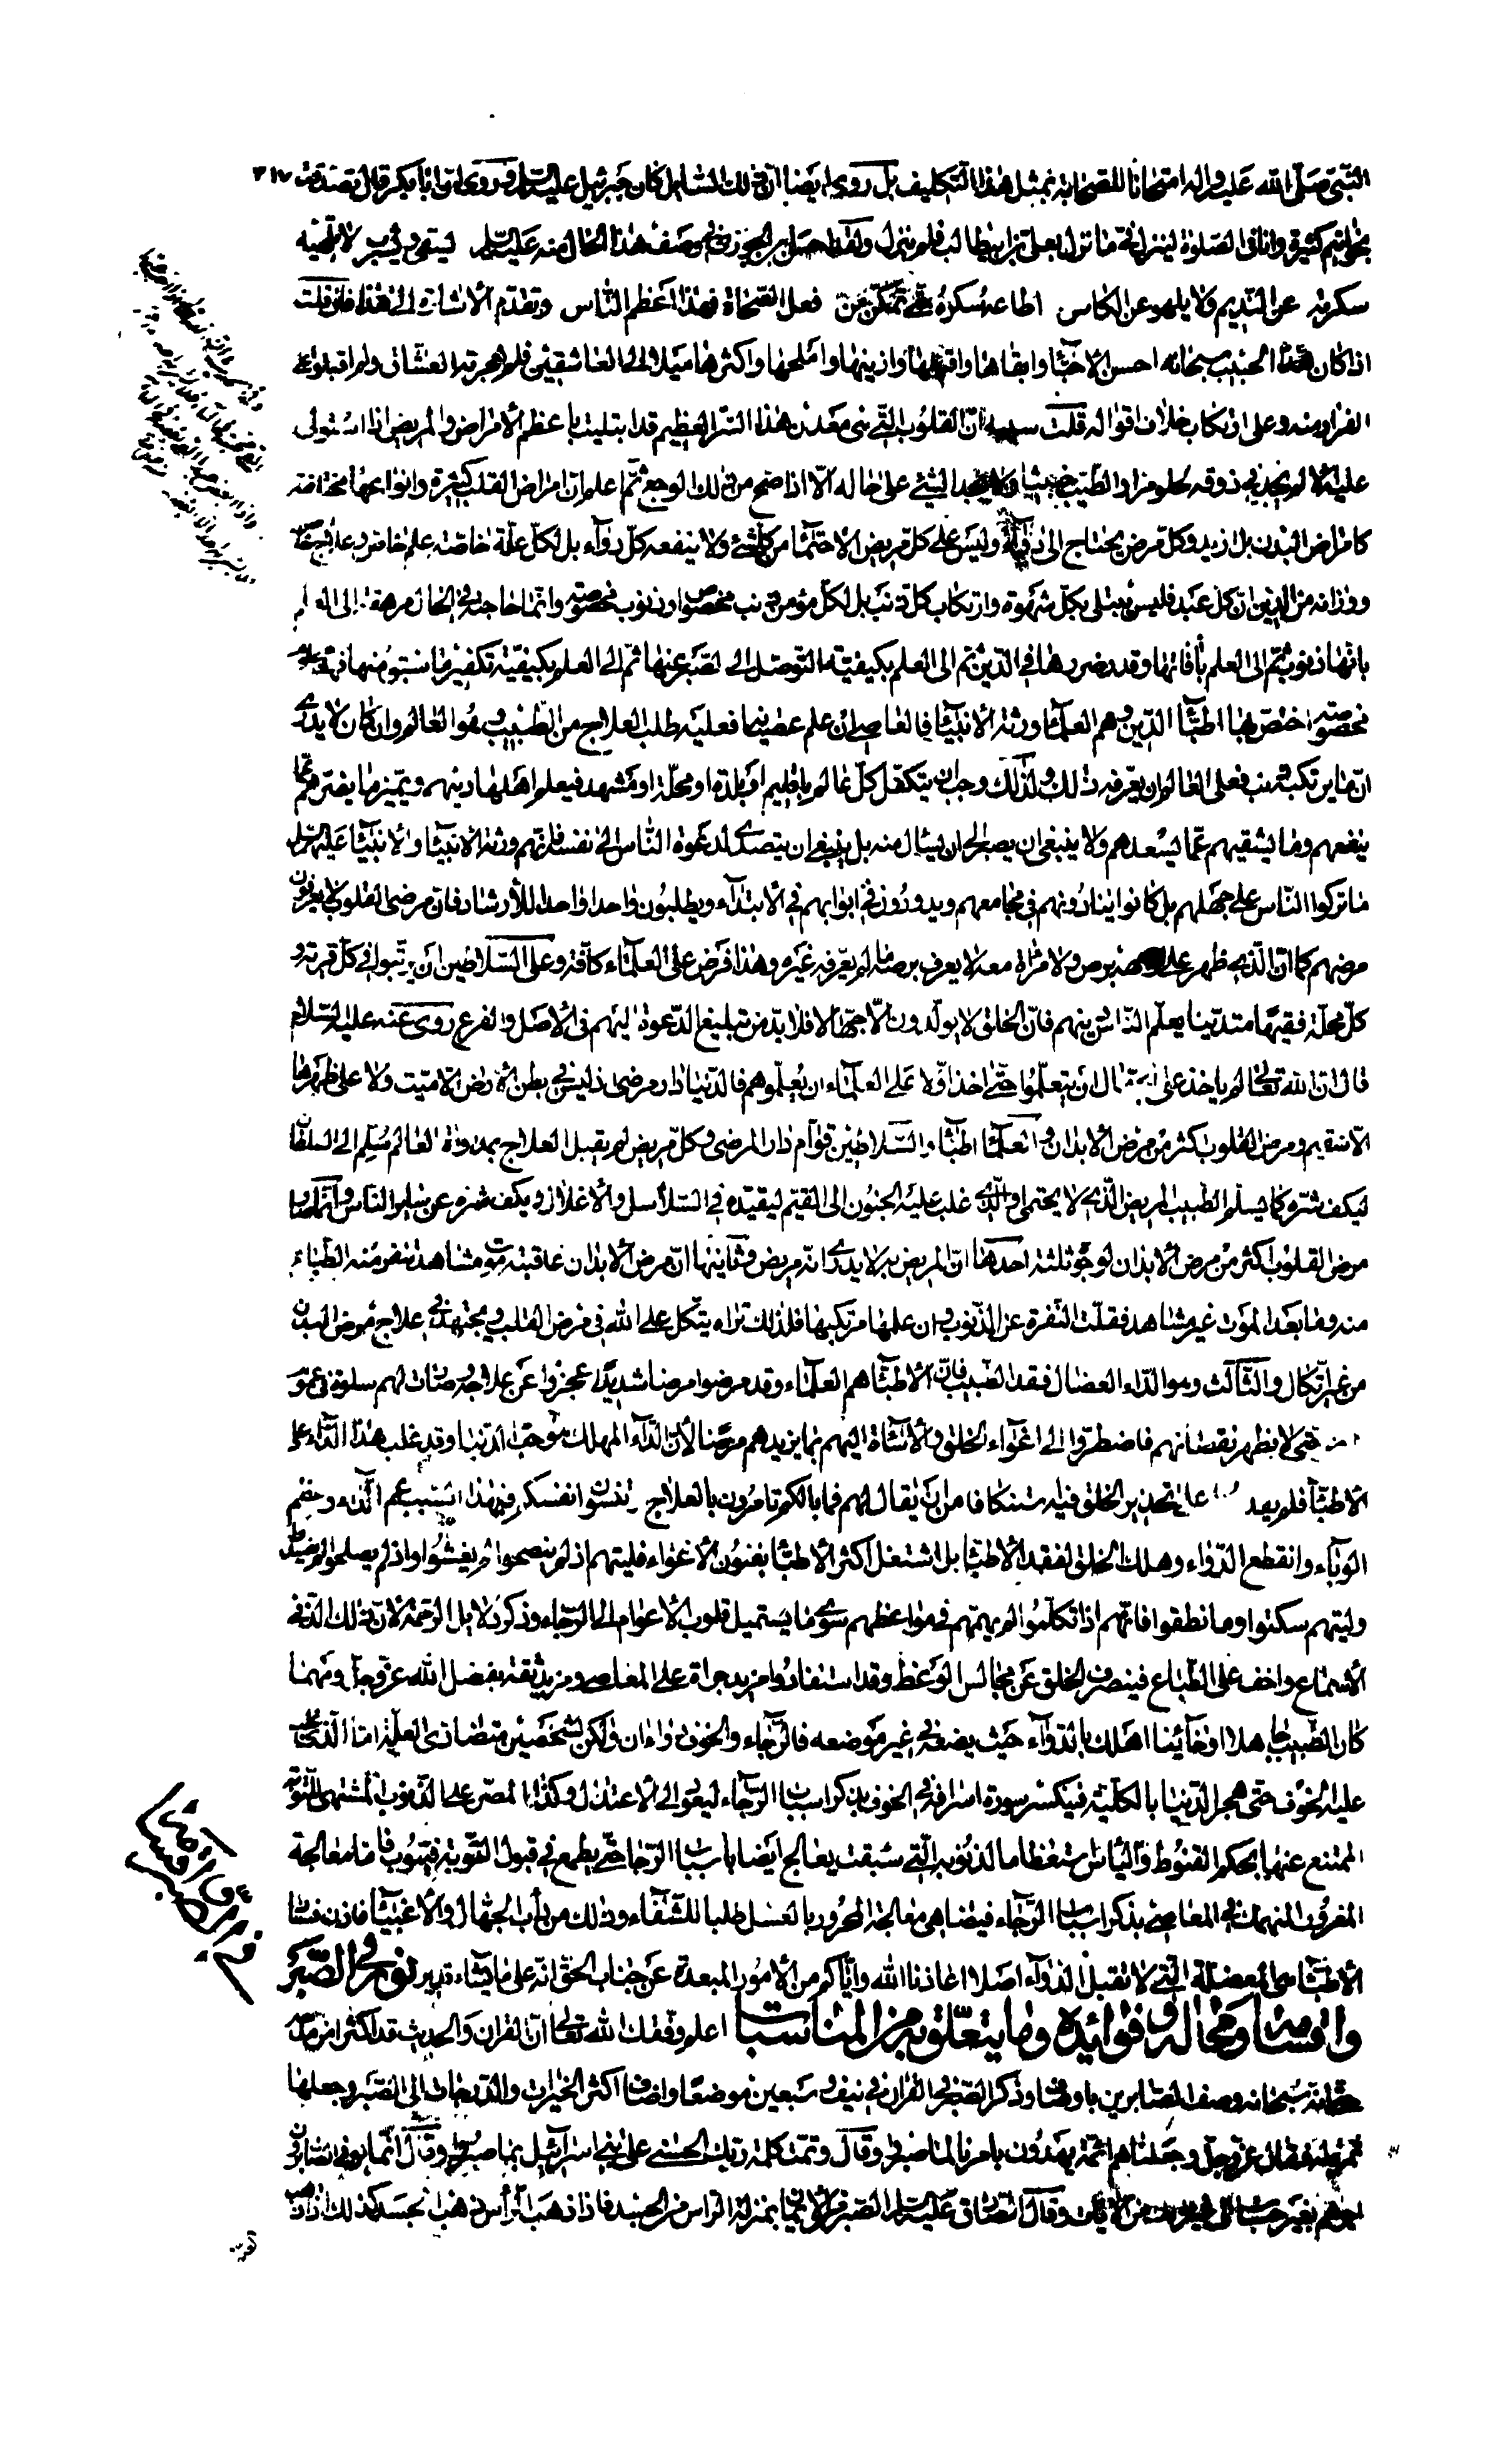 النبي صلى الله عليه واله امتحانا للصحابة بمثل هذا التكليف بل روى ايضا ان ذلك السايل كان جبرئيل عليه السلم وروى ان ابا بكر قال تصدقت ٣١٧
بخواتيم كثيرة وانا في الصلوة لينزل في ما نزل بعلي بن ابيطالب فلم ينزل ولقد احسن ابن الجوزي في وصف هذا الحال منه عليه السلم يسقي ويشرب لا تلهيه
سكرته عن النديم ولا يلهو عن الكاس اطاعه سكره حتى تمكن من فعل الصحاة فهذا اعظم الناس وتقدم الاشارة الى هذا فان قلت
اذا كان هذا الحبيب سبحانه احسن الاحباء وابقاها واقربها وازينها واملحها واكثرها ميلا الى العاشقين فلم هجرته العشاق ولم اقبلوا على
الفرار منه وعلى ارتكاب خلاف اقواله قلت ان القلوب التي هي معدن هذا السر العظيم قد ابتليت باعظم الأمراض والمريض اذا استولى
عليه الألم يجد في ذوقه الحلو مرا والطيب خبيثا ولا يجد الشئ على حاله الا اذا صح من ذلك الوجع ثم اعلم ان امراض القلب كثيرة وانواعها مختلفة
كامراض البدن بل ازيد وكل مرض يحتاج الى دواء وليس على كل مريض الاحتماء من كل شئ ولا ينفعه كل دواء بل لكل علة خاصة علم خاص وعلاج خاص
ووزانه من الدين ان كل عبد فليس يبتلى بكل شهوة وارتكاب كل ذنب بل لكل مؤمن ذنب مخصوص او ذنوب مخصوصة وانما حاجته في الحال مرهقة الى العلم
بانها ذنوب ثم الى العلم بأفاتها وقدر ضررها في الدين ثم الى العلم بكيفية التوصل الى الصبر عنها ثم الى العلم بكيفية تكفير ما سبق منها فهذه علوم
مخصوصة اختص بها اطباء الدين وهم العلماء ورثة الأنبياء فالعاصي ان علم عصيانه فعليه طلب العلاج من الطبيب وهو العالم وان كان لا يدري
ان ما يرتكبه ذنب فعلى العالم ان يعرفه ذلك ولذلك وجب ان يتكفل كل عالم باقليم او بلدة او محلة او مشهد فيعلم اهلها دينهم ويميز ما يضرهم عما
ينفعهم وما يشقيهم عما يسعدهم ولا ينبغي ان يصبر الى ان يسئال منه بل ينبغي ان يتصدى لدعوة الناس الى نفسه فانهم ورثة الأنبياء والأنبياء عليهم السلم
ما تركوا الناس على جهلهم بل كانوا ينادونهم في مجامعهم ويدورون في ابوابهم في الأبتداء ويطلبون واحدا واحدا للأرشاد فان مرضى القلوب لا يعرفون
مرضهم كما ان الذي ظهر على وجهه برص ولا مراة معه لا يعرف برصه ما لم يعرفه غيره وهذا فرض على العلماء كافة وعلى السلاطين ان يرتبوا في كل قرية و
كل محلة فقيها متدينا يعلم الناس دينهم فان الخلق لا يولدون الا جهالا فلا بد من تبليغ الدعوة اليهم في الأصل والفرع روى عنه عليه السلام
قال ان الله تعالى لم ياخذ على الجهال ان يتعلموا حتى اخذ اولا على العلماء ان يعلموهم فالدنيا دار مرضى اذ ليس في بطن الأرض الا ميت ولا على ظهرها
الا سقيم ومرض القلوب اكثر من مرض الأبدان والعلماء اطباء والسلاطين قوام دار المرضى وكل مريض لم يقبل العلاج بمداواة العالم سلم الى السلطان
ليكف شره كما يسلم الطبيب المريض الذي لا يحتمي او الذي غلب عليه الجنون الى القيم ليقيده في السلاسل والأغلال ويكف شره عن ساير الناس وانما صار
مرض القلوب اكثر من مرض الأبدان لوجوه ثلثة احدها ان المريض به لا يدري انه مريض وثانيها ان مرض الأبدان عاقبته موت مشاهد تنفر منه الطباع
منه وما بعد الموت غير مشاهد فقلت النفرة عن الذنوب وان علمها مرتكبها فلذلك تراه يتكل على الله في مرض القلب ويجتهد في علاج مرض البدن
من غير اتكال والثالث وهو الداء العضال فقد الطبيب فان الأطباء هم العلماء وقد مرضوا مرضا شديدا عجزوا عن علاجه وصارت لهم سلوة في عموم
المرض حتى لا يظهر نقصانهم فاضطروا الى اغواء الخلق والأشارة اليهم بما يزيدهم مرضا لأن الداء المهلك هو حب الدنيا وقد غلب هذا الداء على
الأطباء فلم يقدروا على تحذير الخلق منه استنكافا من ان يقال لهم فما بالكم تامرون بالعلاج وتنسون انفسكم فبهذا السبب عم الداء وعظم
الوباء وانقطع الدواء وهلك الخلق لفقد الأطباء بل اشتغل اكثر الأطباء بفنون الأغواء فليتهم اذ لم ينصحوا لم يغشوا واذ لم يصلحوا لم يفسدوا
وليتهم سكتوا وما نطقوا فانهم اذا تكلموا لم يهمهم في مواعظهم سوى ما يستميل قلوب الأعوام الى الرجاء وذكر دلايل الرحمة لان ذلك الذ في
الأسماع واخف على الطباع فينصرف الخلق عن مجالس الوعظ وقد استفادوا مزيد جراة على المعاصي ومزيد ثقة بفضل الله عز وجل ومهما
كان الطبيب جاهلا او خائنا اهلك بالدواء حيث يضعه في غير موضعه فالرجاء والخوف دواءان ولكن لشخصين متضادي العلة اما الذي غلب
عليه الخوف حتى هجر الدنيا بالكلية فيكسر سورة اسرافه في الخوف بذكر اسباب الرجاء ليعود الى الأعتدال وكذا المصر على الذنوب المشتهي للتوبة
الممتنع عنها بحكم القنوط والياس استعظاما لذنوبه التي سبقت يعالج ايضا باسباب الرجاء حتى يطمع في قبول التوبة فيتوب فاما معالجة
المغرور المنهمك في المعاصي بذكر اسباب الرجاء فيضاهي معالجة المحرور بالعسل طلبا للشفاء وذلك من داب الجهال والأغبياء فاذن فساد
الأطباء هي المعضلة التي لا تقبل الدواء اصلا اعاذنا الله واياكم من الأمور المبعدة عن جناب الحق انه على ما يشاء قدير نور في الصبر
واقسامه ومحاله وفوائده وما يتعلق به من المناسبات اعلم وفقك الله تعالى ان القران والحديث قد اكثرا من مدحه
فانه سبحانه وصف الصابرين باوصاف وذكر الصبر في القران في نيف وسبعين موضعا واضاف اكثر الخيرات والدرجات الى الصبر وجعلها
ثمرة له فقال عز وجل وجعلناهم ائمة يهدون بامرنا لما صبروا وقال وتمت كلمة ربك الحسنى على بني اسرائيل بما صبروا وقال انما يوفى الصابرون
اجرهم بغير حساب الى غير ذلك من الايات وقال الصادق عليه السلم الصبر من الايمان بمنزلة الراس من الجسد فاذا ذهب الرأس ذهب الجسد كذلك اذا ذهب